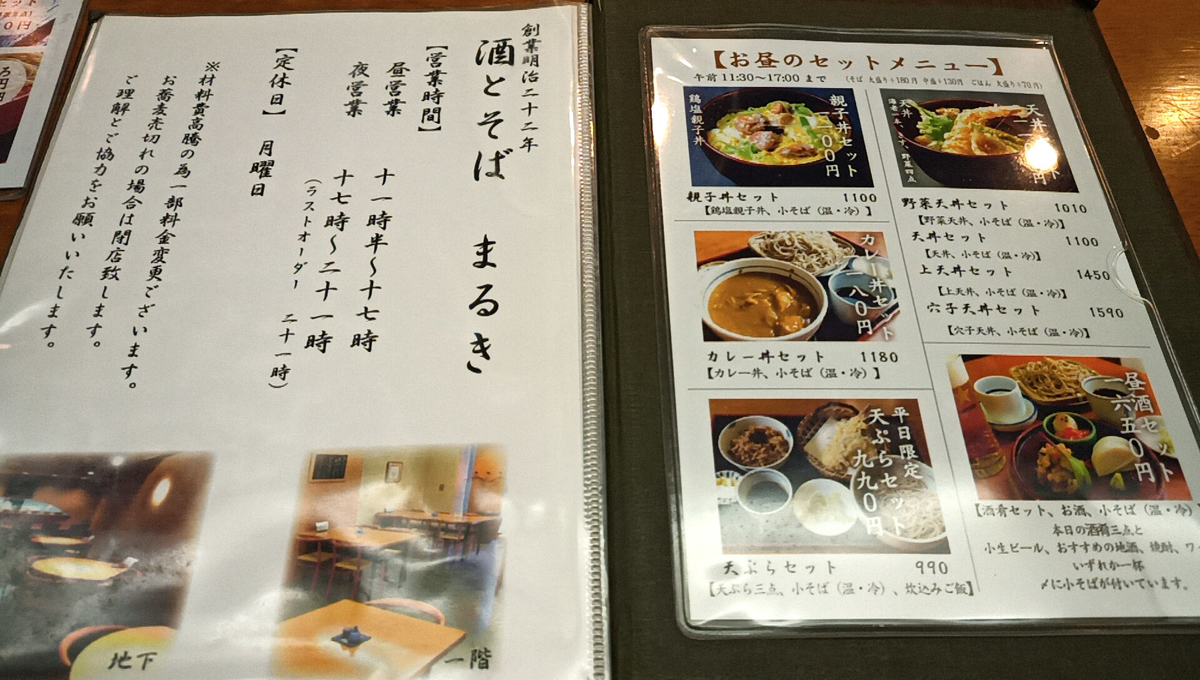 創業明治二十二年
酒とそば まるき
【営業時間】
昼営業 十一時半～十七時
夜営業 十七時～二十一時
(ラストオーダー 二十一時)
【定休日】 月曜日
※材料費高騰の為一部料金変更ございます。
お蕎麦売切れの場合は閉店致します。
ご理解とご協力をお願いいたします。
地下
一階
【お昼のセットメニュー】
午前11:30～17:00まで (そば 大盛り+180円 中盛+130円 ごはん 大盛り+70円)
親子丼セット
一一〇〇円
鶏塩親子丼
親子丼セット 1100
【鶏塩親子丼、小そば(温・冷)】
カレー丼セット
一一八〇円
カレー丼セット 1180
【カレー丼、小そば(温・冷)】
平日限定
天ぷらセット
九九〇円
天ぷらセット 990
【天ぷら三点、小そば(温・冷)、炊込みご飯】
天丼
野菜四点
野菜天丼セット 1010
【野菜天丼、小そば(温・冷)】
天丼セット 1100
【天丼、小そば(温・冷)】
上天丼セット 1450
【上天丼、小そば(温・冷)】
穴子天丼セット 1590
【穴子天丼、小そば(温・冷)】
昼酒セット
一六五〇円
【酒肴セット、お酒、小そば(温・冷)
本日の酒肴三点と
小生ビール、おすすめの地酒、焼酎、ワ
いずれか一杯
〆に小そばが付いています。